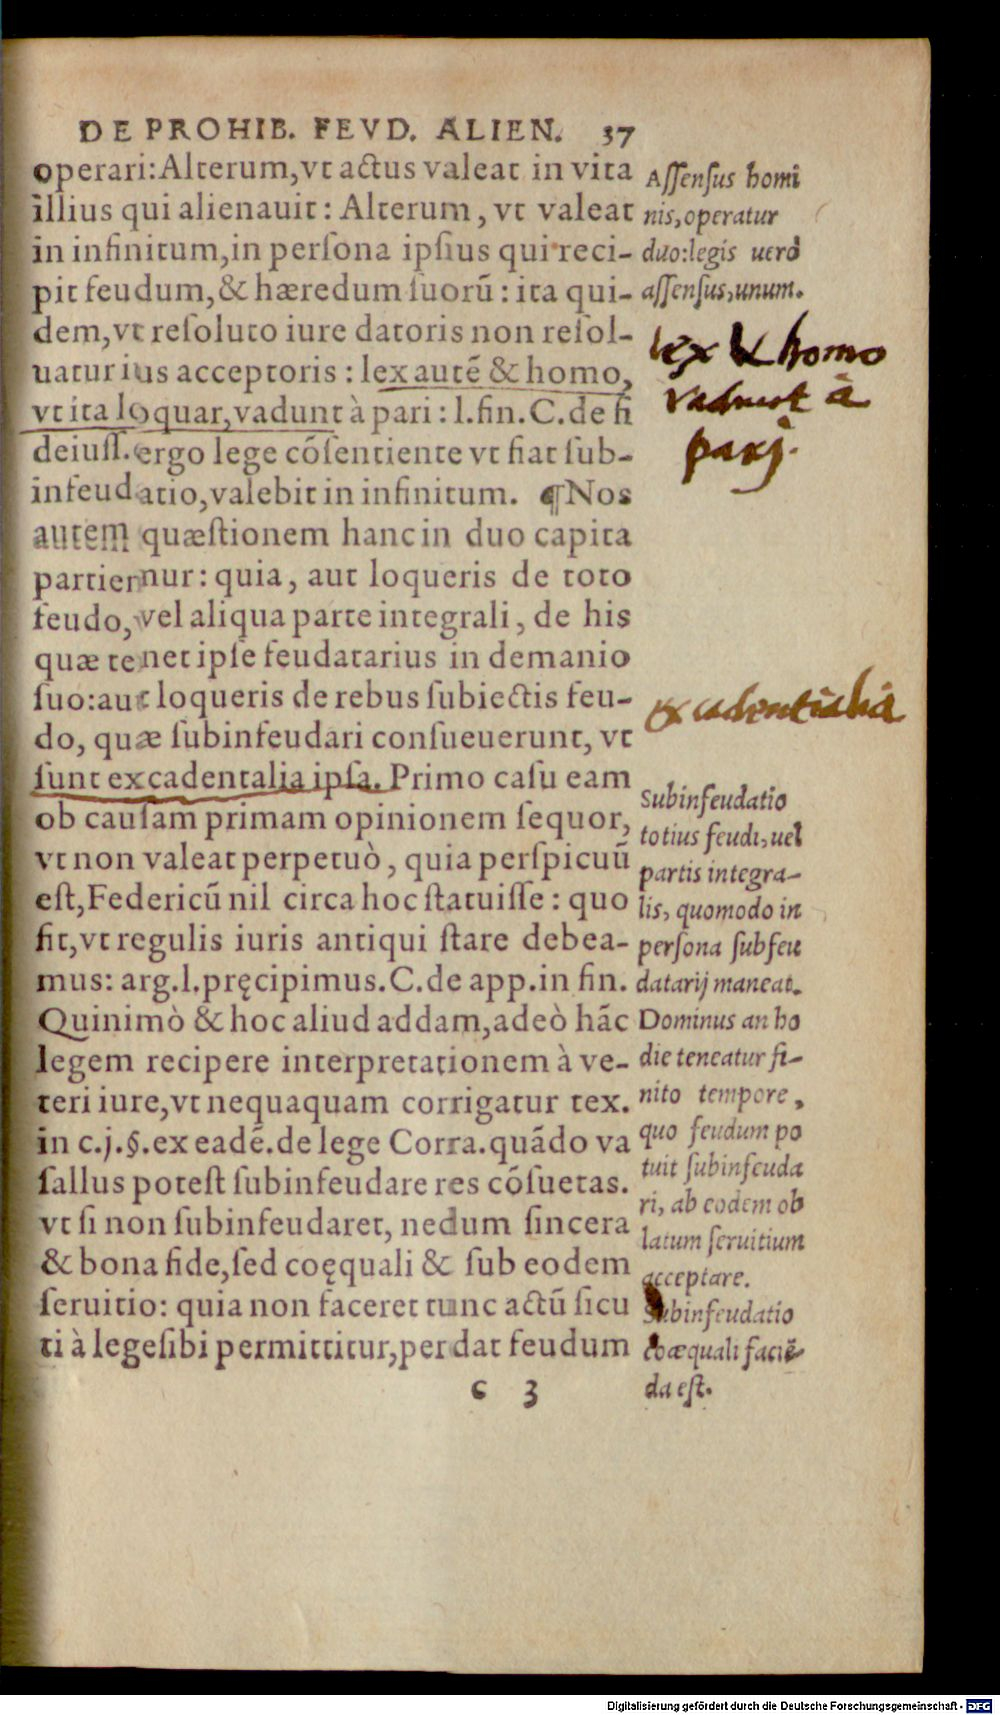 DE PROHIB. FEVD. ALIEN. 37
operari: Alterum, vt actus valeat in vita
illius qui alienauit: Alterum, vt valeat
in infinitum, in persona ipsius qui reci-
pit feudum, & hæredum suorũ: ita qui-
dem, vt resoluto iure datoris non resol-
uatur ius acceptoris: lex autẽ & homo,
vt ita loquar, vadunt à pari: l. fin. C. de fi
deiuss. ergo lege cõsentiente vt fiat sub-
infeudatio, valebit in infinitum. ¶Nos
autem quæstionem hanc in duo capita
partiemur: quia, aut loqueris de toto
feudo, vel aliqua parte integrali, de his
quæ tenet ipse feudatarius in demanio
suo: aut loqueris de rebus subiectis feu-
do, quæ subinfeudari consueuerunt, vt
sunt excadentalia ipsa. Primo casu eam
ob causam primam opinionem sequor,
vt non valeat perpetuò, quia perspicuũ
est, Federicũ nil circa hoc statuisse: quo
fit, vt regulis iuris antiqui stare debea-
mus: arg. l. pręcipimus. C. de app. in fin.
Quinimò & hoc aliud addam, adeò hãc
legem recipere interpretationem à ve-
teri iure, vt nequaquam corrigatur tex.
in c. j. §. ex eadẽ. de lege Corra. quãdo va
sallus potest subinfeudare res cõsuetas.
vt si non subinfeudaret, nedum sincera
& bona fide, sed coęquali & sub eodem
seruitio: quia non faceret tunc actũ sicu
ti à lege sibi permittitur, perdat feudum
c 3
Assensus homi
nis, operatur
duo: legis uerò
assensus, unum.
lex & homo
vadunt à
parj.
excadentialia
Subinfeudatio
totius feudi, uel
partis integra-
lis, quomodo in
persona subfeu
datarij maneat.
Dominus an ho
die teneatur fi-
nito tempore,
quo feudum po
tuit subinfeuda
ri, ab eodem ob
latum seruitium
acceptare.
Subinfeudatio
coæquali faciẽ-
da est.
Digitalisierung gefördert durch die Deutsche Forschungsgemeinschaft - DFG